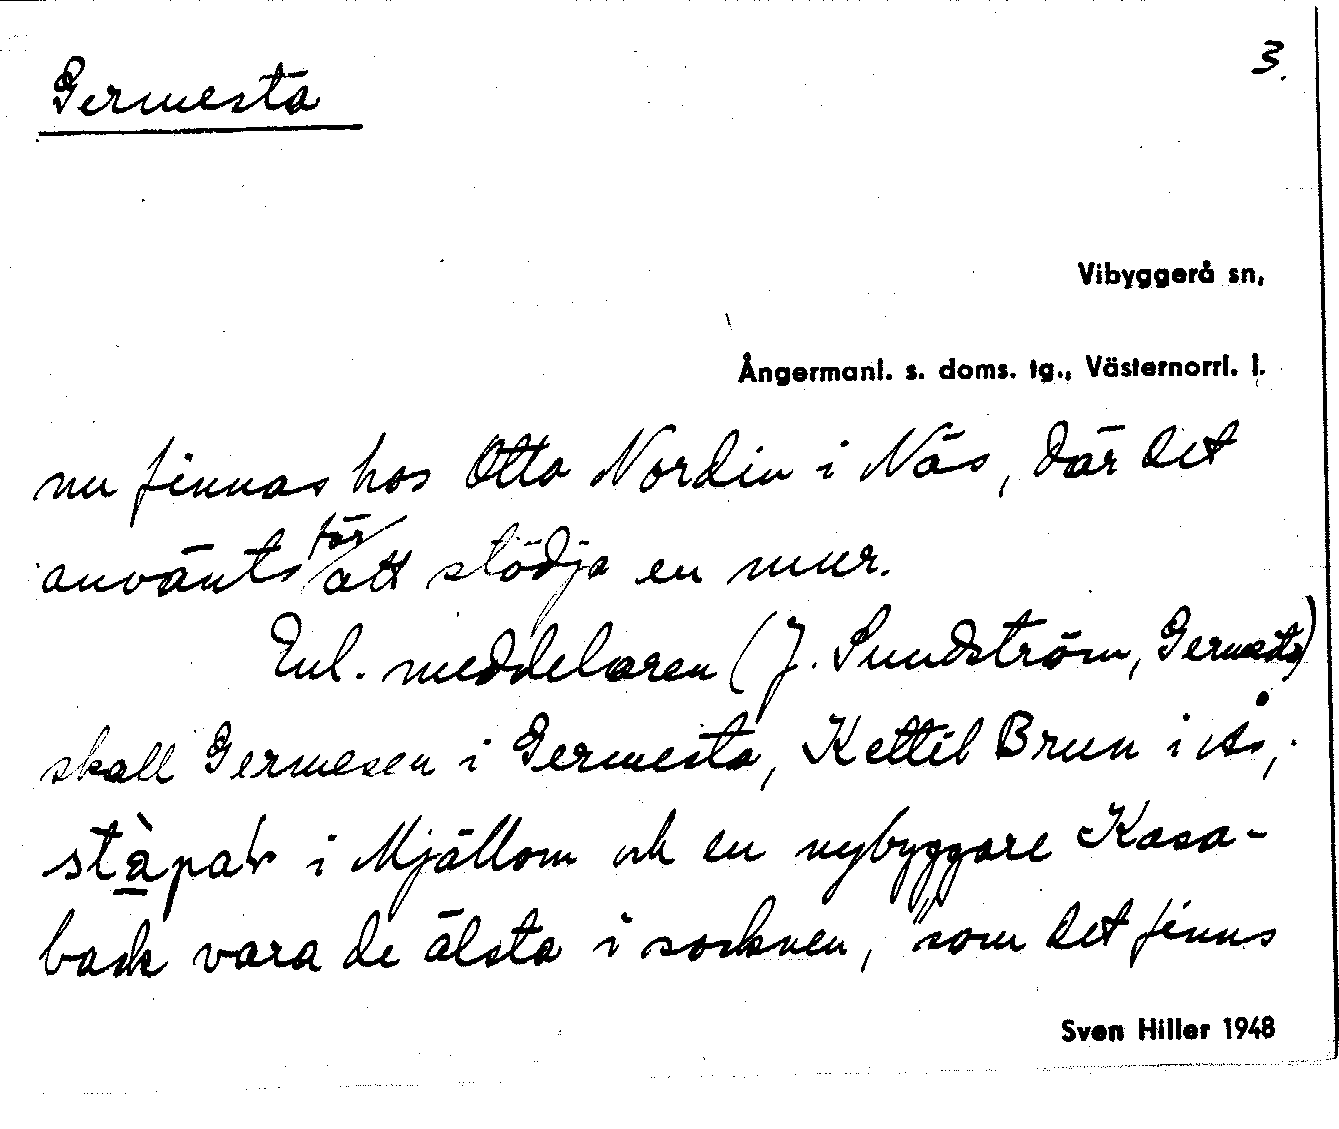 Germesta
3.
Vibyggerå sn,
Ångermanl. s. doms. tg., Västernorrl. l.
nu finnas hos Otto Nordin i Näs, där det
använts för att stödja en mur.
Enl. meddelaren (J. Sundström, Germesta)
skall Germesen i Germesta, Kettil Brun i Ås,
stàpar i Mjällom och en nybyggare Kasa-
back vara de älsta i socknen, "som det finns
Sven Hiller 1948